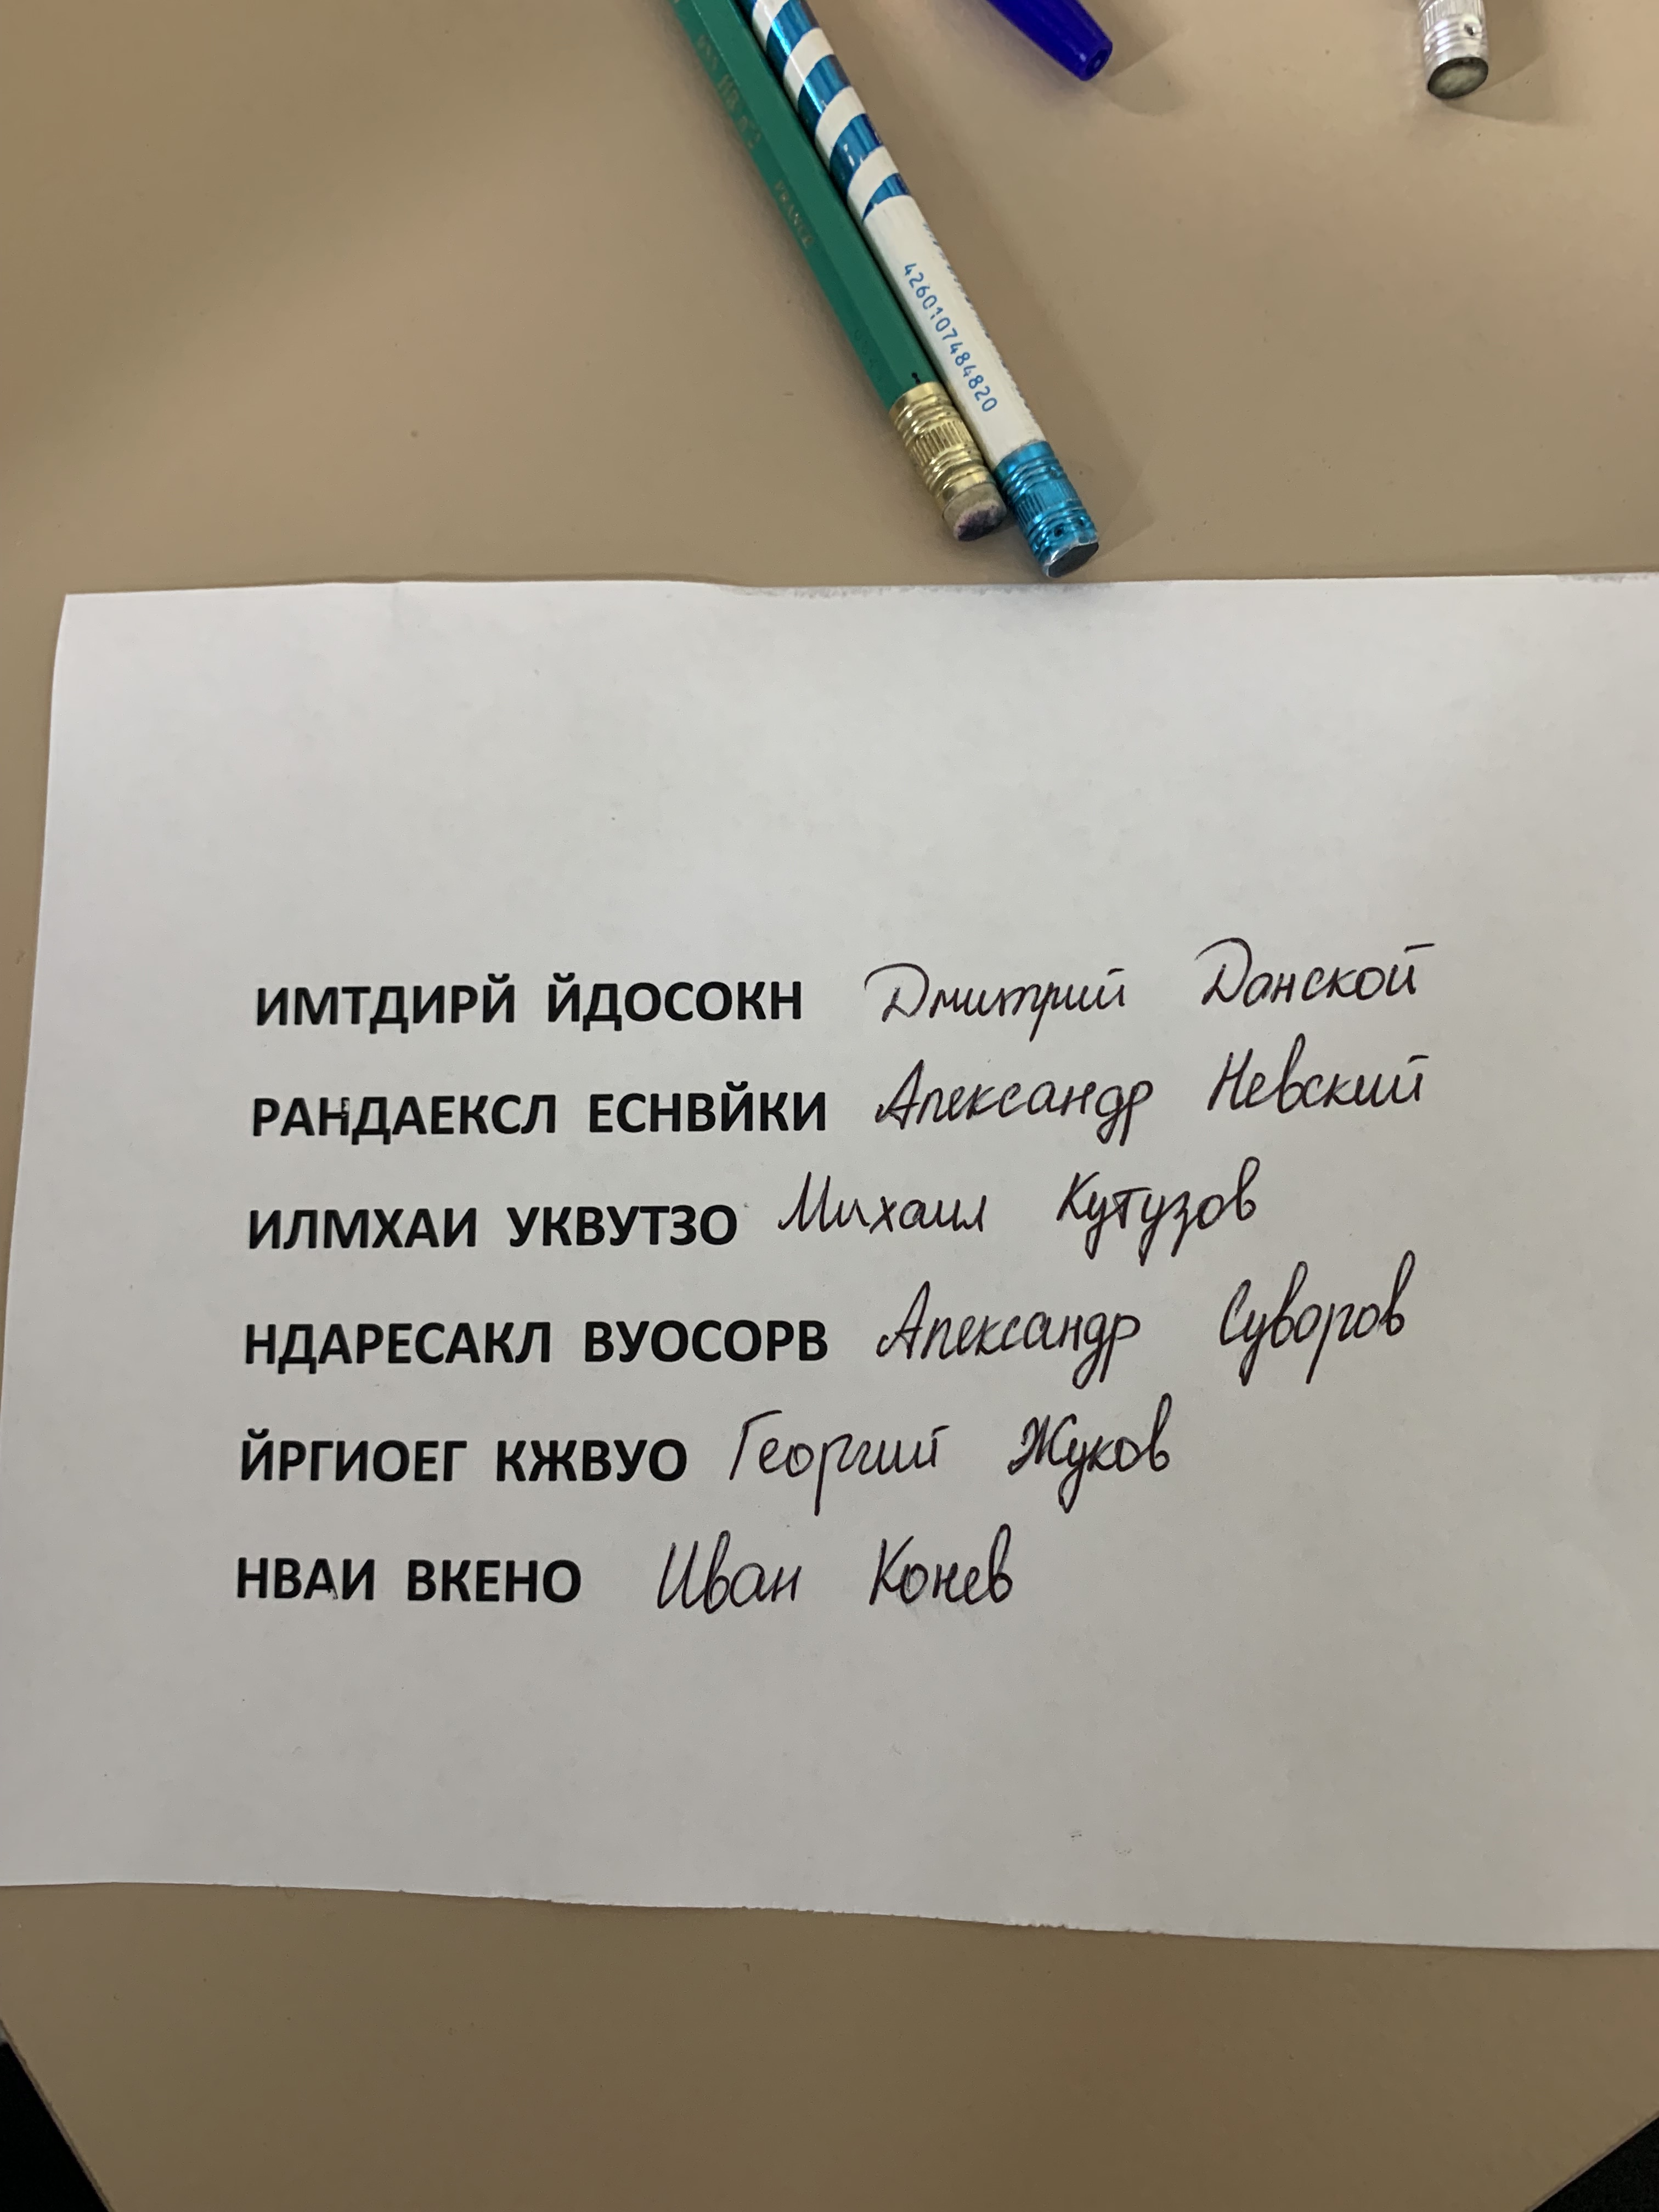 FRANCE
4260107484820
ИМТДИРЙ ЙДОСОКН Дмитрий Данской
РАНДАЕКСЛ ЕСНВЙКИ Александр Невский
ИЛМХАИ УКВУТЗО Михаил Кутузов
НДАРЕСАКЛ ВУОСОРВ Александр Суворов
ЙРГИОЕГ КЖВУО Георгий Жуков
НВАИ ВКЕНО Иван Конев